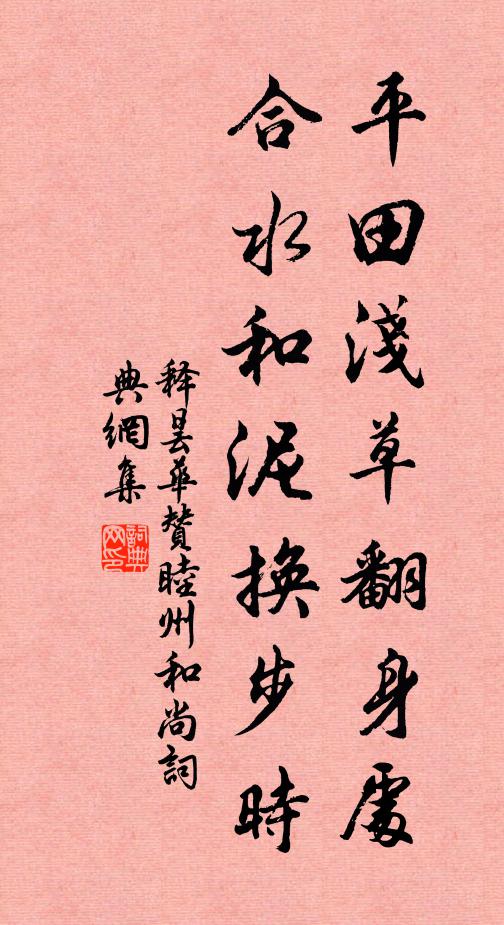 平田淺草翻身處
合水和泥換步時
释昙華贊睦州和尚詞
典網集
詞典
网印